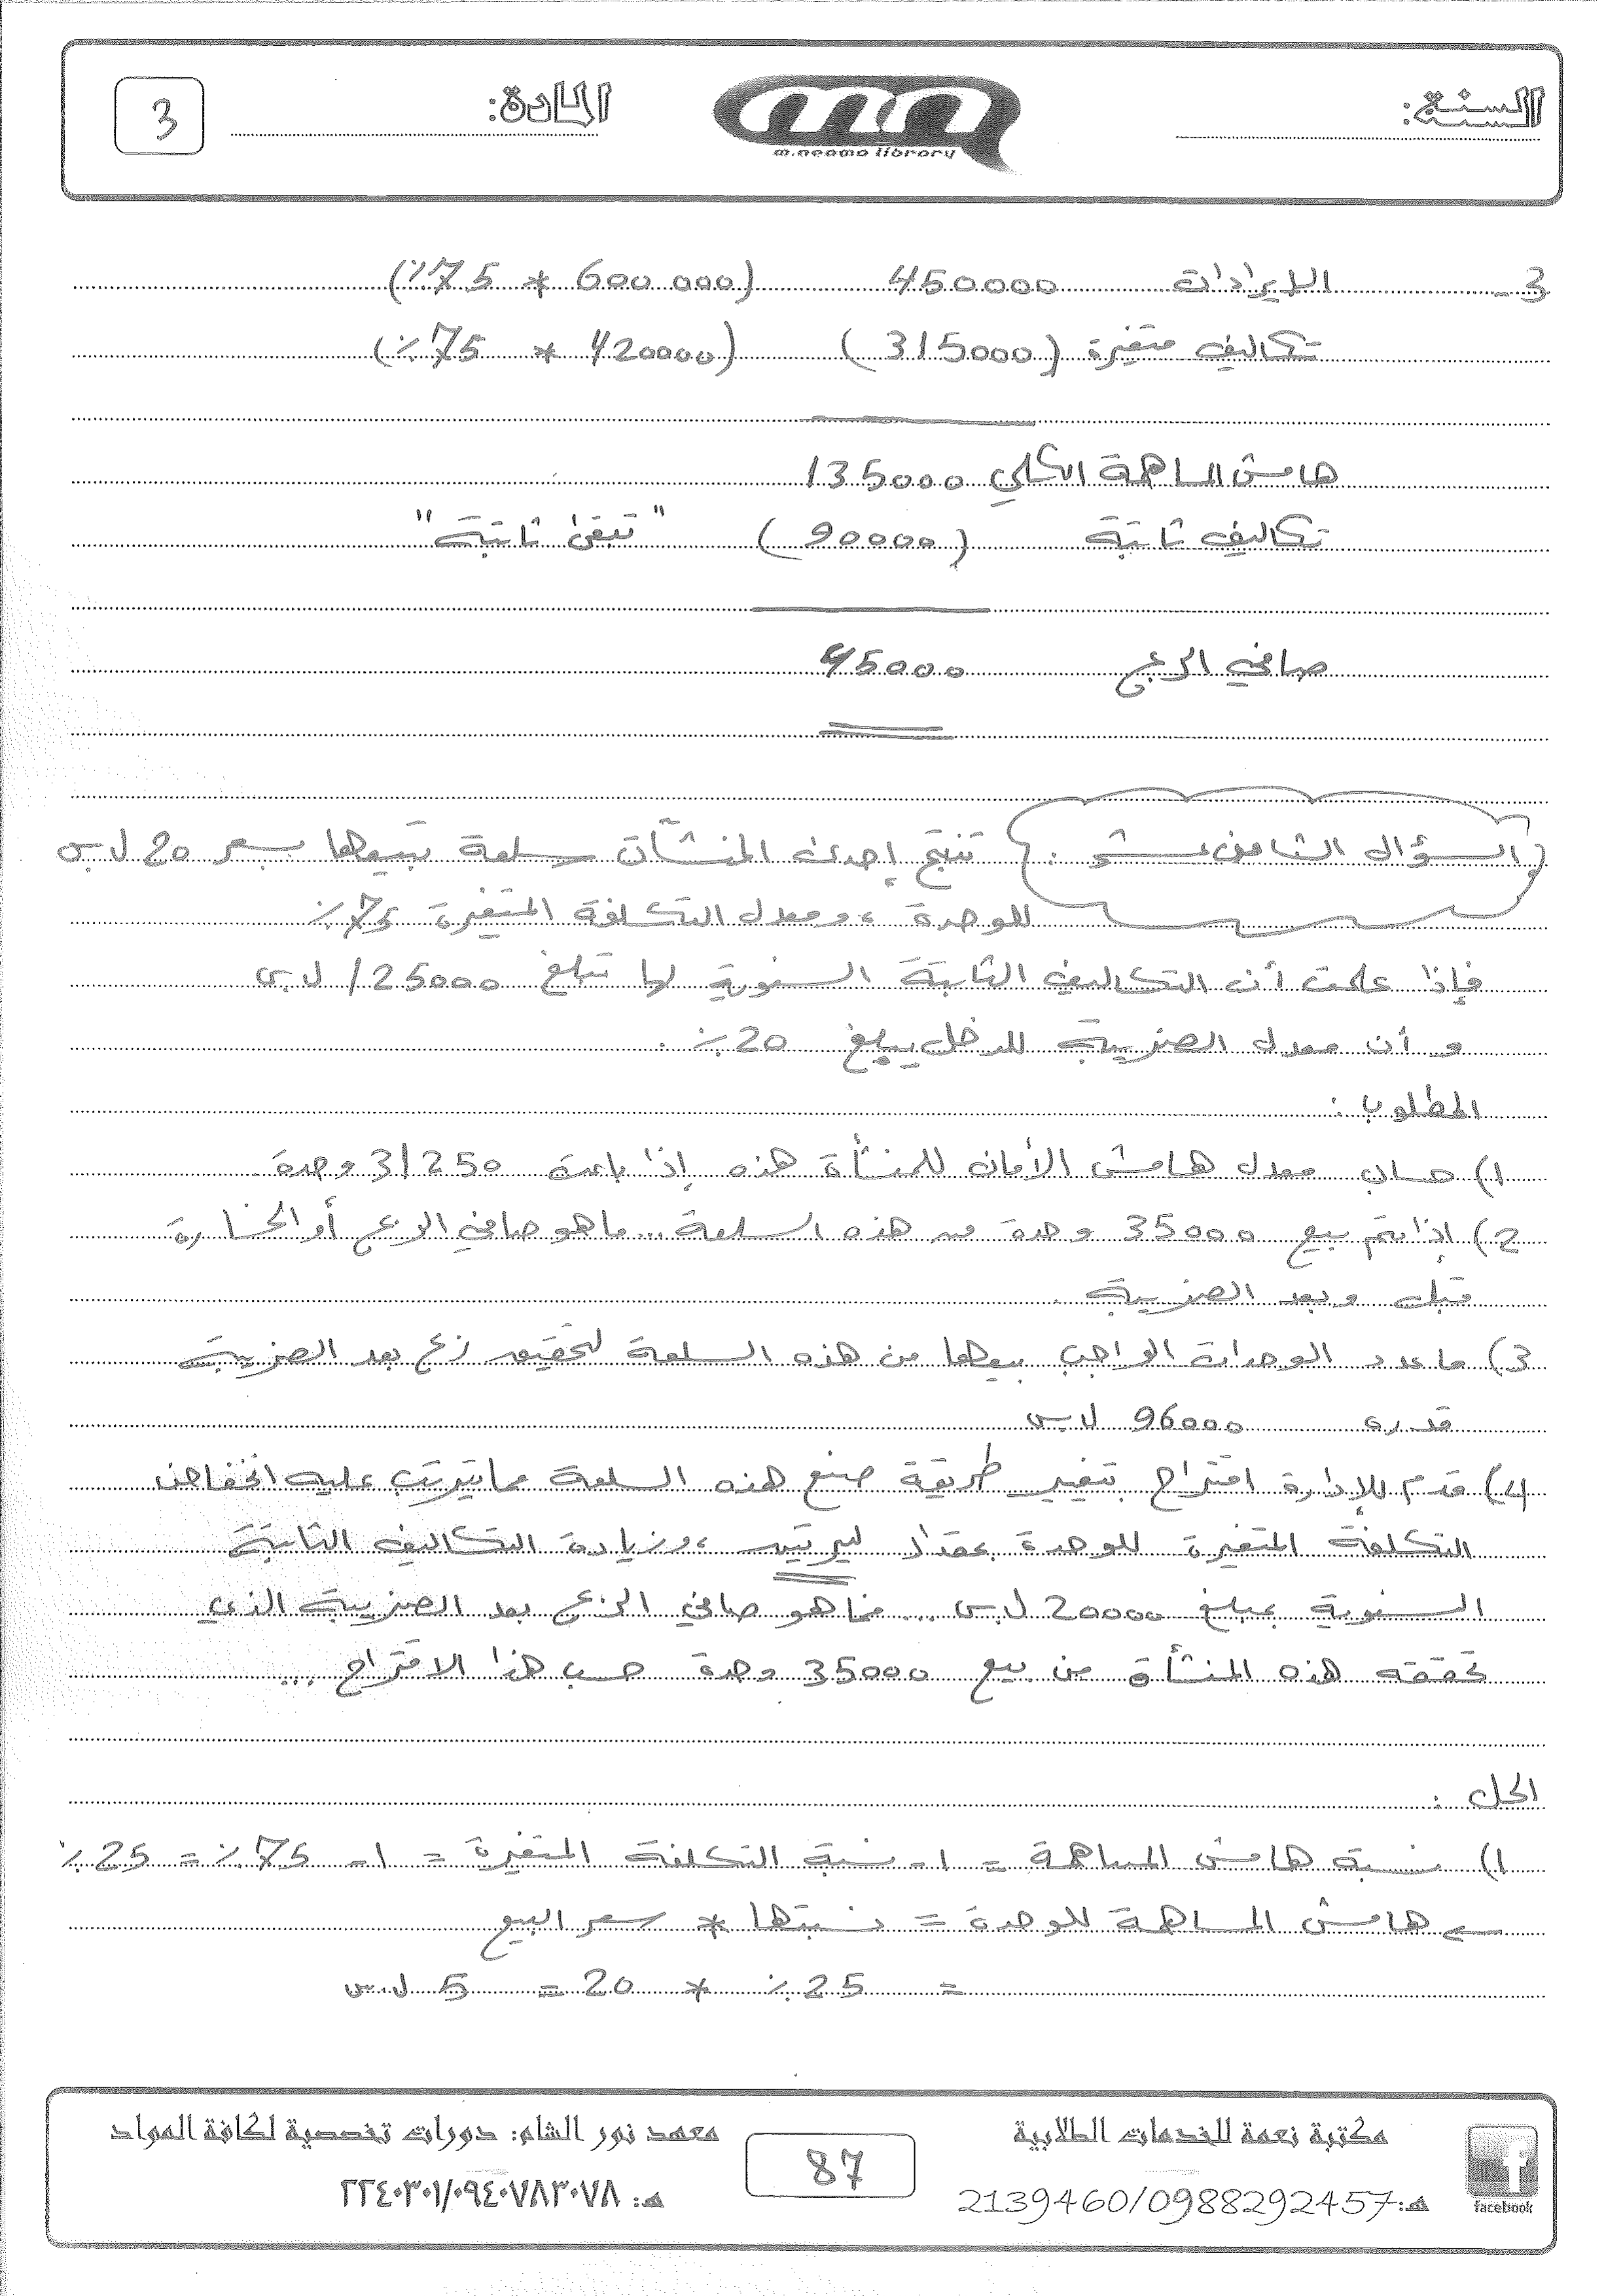 السنة:
m.neama library
المادة:
3
3- الإيرادات 450000 (600 000 * 75٪)
تكاليف متغيرة (315000) (420000 * 75٪)
هامش المساهمة الكلي 135000
تكاليف ثابتة (90000) "تبقى ثابتة"
صافي الربح 45000
السؤال الثامن عشر: تنتج إحدى المنشآت سلعة تبيعها بسعر 20 ل.س
للوحدة، ومعدل التكلفة المتغيرة 75٪
فإذا علمت أن التكاليف الثابتة السنوية لها تبلغ 125000 ل.س
و أن معدل الضريبة للدخل يبلغ 20٪ .
المطلوب :
1) حساب معدل هامش الأمان للمنشأة هذه إذا باعت 31250 وحدة.
2) إذا تم بيع 35000 وحدة من هذه السلعة... ما هو صافي الربح أو الخسارة
قبل وبعد الضريبة.
3) ما عدد الوحدات الواجب بيعها من هذه السلعة لتحقيق ربح بعد الضريبة
قدره 96000 ل.س
4) قدم للإدارة اقتراح بتغيير طريقة صنع هذه السلعة مما يترتب عليه انخفاض
التكلفة المتغيرة للوحدة بمقدار ليرتين، وزيادة التكاليف الثابتة
السنوية بمبلغ 20000 ل.س... فما هو صافي الربح بعد الضريبة الذي
تحققه هذه المنشأة من بيع 35000 وحدة حسب هذا الاقتراح...
الحل :
1) نسبة هامش المساهمة = 1 - نسبة التكلفة المتغيرة = 1 - 75٪ = 25٪
← هامش المساهمة للوحدة = نسبتها * سعر البيع
= 25٪ * 20 = 5 ل.س
facebook
مكتبة نعمة للخدمات الطلابية
هـ: 2139460/0988292457
87
معهد نور الشام: دورات تخصصية لكافة المواد
هـ: ٢٢٤٠٣٠١/٠٩٤٠٧٨٣٠٧٨